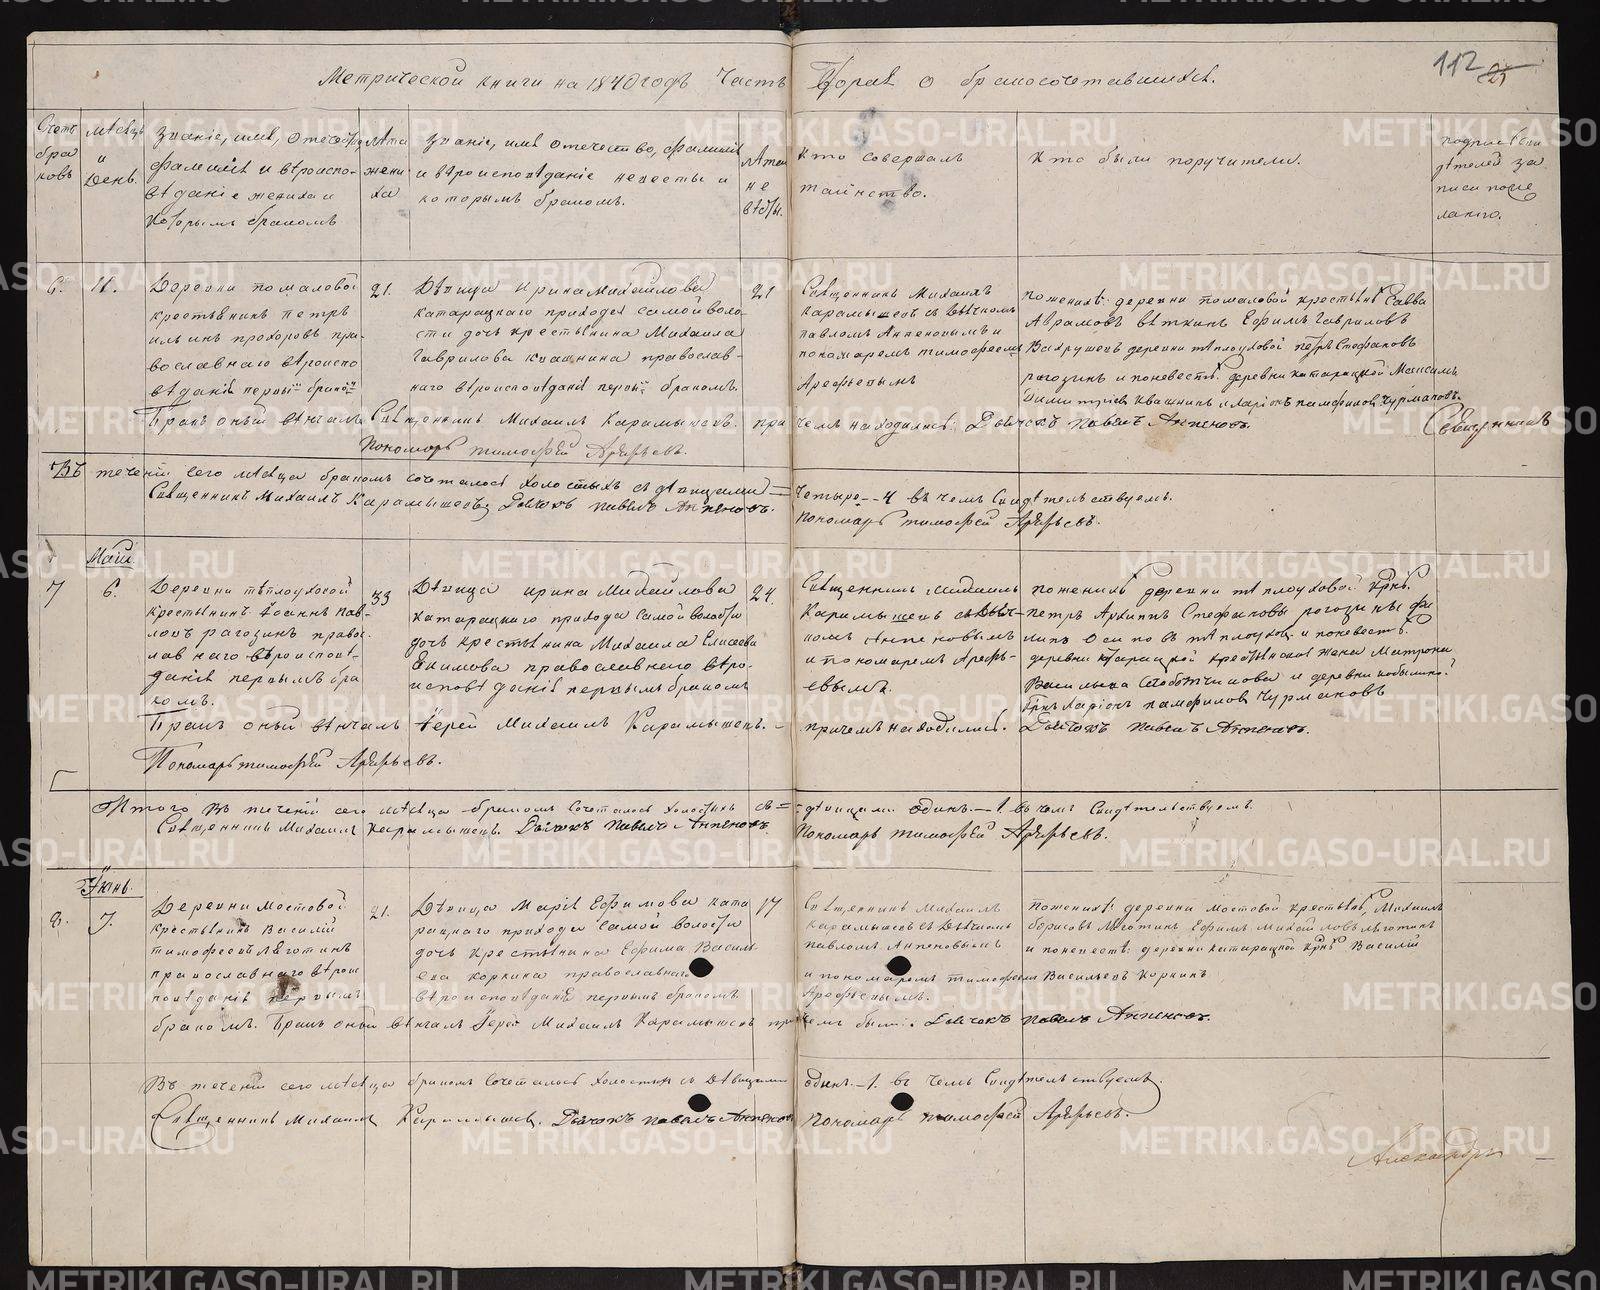 Метрической книги на 1840 годъ Часть Вторая о бракосочетавшихся.
112
25
Счетъ бра ковъ
Мѣсяцъ и День.
Званіе, имя, отечество,
фамилія и вѣроиспо-
вѣданіе жениха и
которымъ бракомъ
Лѣта жени ха
Званіе, имя отечество, фамилія
и вѣроисповѣданіе невесты и
которымъ бракомъ.
Лѣта не вѣсты.
Кто совершалъ
таинство.
Кто были поручители.
6. 11.
Деревни
крестьянинъ петръ
ильинъ прохоровъ пра-
вославнаго вѣроиспо
вѣданія первымъ бракомъ
21.
Дѣвица Ирина Михайлова
катарацкаго прихода самой воло-
сти дочь крестьянина Михаила
Гаврилова квашнина православ-
наго вѣроисповѣданія первымъ бракомъ.
21
Священникъ Михаилъ
Карамышевъ съ Дьячкомъ
павломъ и
пономаремъ тимофеемъ
Арефьевымъ
По женихѣ: деревни крестьяне Савва
Авраамовъ вяткинъ Ефимъ Гавриловъ
Вахрушевъ деревни тѣплоуховой петръ Стефановъ
рагозинъ и по невестѣ деревни катарацкой Максимъ
Димитріевъ Квашнинъ и Ларіонъ памфиловъ Чурмановъ.
Бракъ оный вѣнчалъ Священникъ Михаилъ Карамышевъ. при чемъ находились: Дьячокъ Павелъ
Священникъ
Пономарь тимофей Арефьевъ.
Въ теченіи сего мѣсяца бракомъ сочеталось холостыхъ съ дѣвицами= Четыре - 4 въ чемъ Свидѣтельствуемъ.
Священникъ Михаилъ Карамышевъ Дьячокъ павелъ Пономарь тимофей Арефьевъ.
Май.
7 6.
Деревни тѣплоуховой
крестьянинъ Іоаннъ пав-
ловъ рагозинъ правос-
лавнаго вѣроисповѣ-
данія первымъ бра
комъ.
33
Дѣвица ирина Михайлова
катарацкаго прихода самой волости
дочь крестьянина Михаила Елисеева
Екимова православнаго вѣро-
исповѣданія первымъ бракомъ
24.
Священникъ Михаилъ
Карамышевъ съ Дьяч-
комъ
и пономаремъ Арефь-
евымъ.
По женихѣ деревни тѣплоуховой крне
петръ Архиппъ Стефановы рогозины фи
липъ Осиповъ тѣплоухов и по невестѣ
деревни катарацкой крестьянская жена Матрона
Васильева и деревни
Ларіонъ памфиловъ Чурмановъ
Бракъ оный вѣнчалъ Іерей Михаилъ Карамышевъ. - при чемъ находились. Дьячокъ Павелъ
Пономарь тимофей Арефьевъ.
Итого въ теченіи сего мѣсяца бракомъ сочеталось холостыхъ съ= =дѣвицами одинъ. - 1. въ чемъ Свидѣтельствуемъ.
Священникъ Михаилъ Карамышевъ. Дьячокъ Павелъ Пономарь тимофей Арефьевъ.
Іюнь.
8. 7.
Деревни Мостовой
крестьянинъ Василій
тимофеевъ лѣготинъ
православнаго вѣроис
повѣданія первымъ
21.
Дѣвица Марія Ефимова ката
рацкаго прихода самой волости
дочь крестьянина Ефима Василь
ева коркина православнаго
вѣроисповѣданія первымъ бракомъ.
17
Священникъ Михаилъ
Карамышевъ съ Дьячкомъ
павломъ
и пономаремъ тимофеемъ
Арефьевымъ.
По женихѣ: деревни мостовой крестьяне, Михаилъ
борисовъ лѣготинъ Ефимъ Михайловъ лѣготинъ
и по невестѣ: деревни катарацкой крне Василій
Васильевъ Коркинъ
бракомъ. Бракъ оный вѣнчалъ Іерей Михаилъ Карамышевъ при чемъ были. Дьячокъ Павелъ
Въ теченіи сего мѣсяца бракомъ сочеталось холостыхъ съ Дѣвицами одинъ. - 1. въ чемъ Свидѣтельствуемъ.
Священникъ Михаилъ Карамышевъ. Дьячокъ Павелъ Пономарь тимофей Арефьевъ.
METRIKI.GASO-URAL.RU